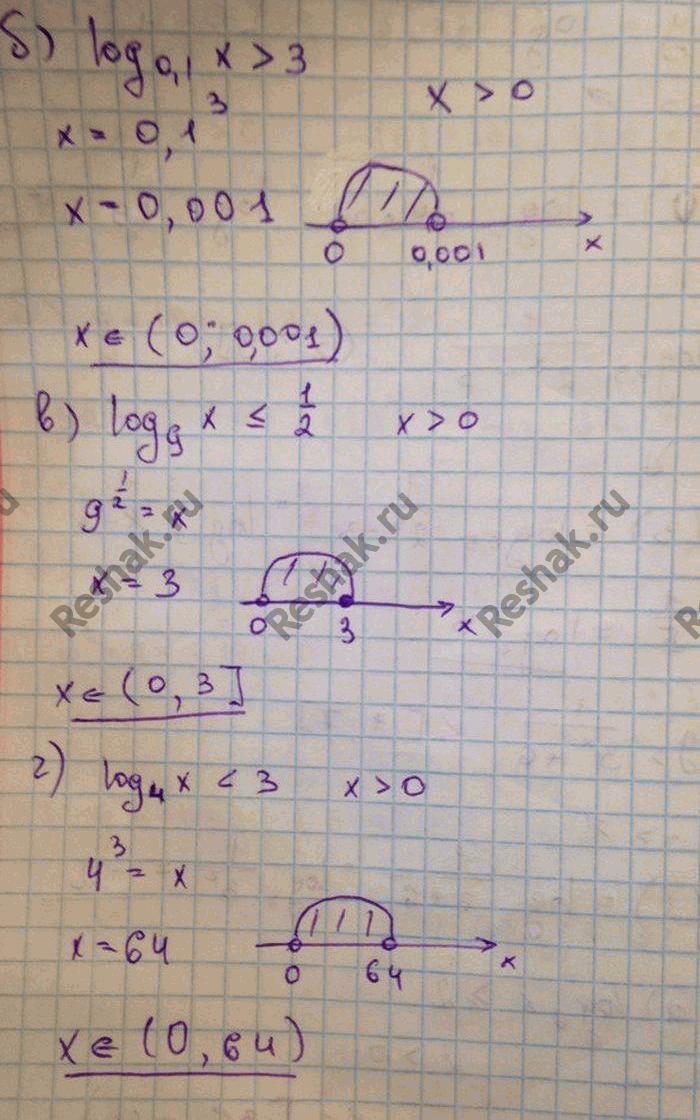 б) log₀,₁ x > 3
x > 0
x = 0,1³
x = 0,001
0 0,001 x
x ∈ (0; 0,001)
в) log₉ x ≤ 1/2 x > 0
9^(1/2) = x
x = 3
0 3 x
Reshak.ru Reshak.ru Reshak.ru
x ∈ (0, 3]
г) log₄ x < 3 x > 0
4³ = x
x = 64
0 64 x
x ∈ (0, 64)